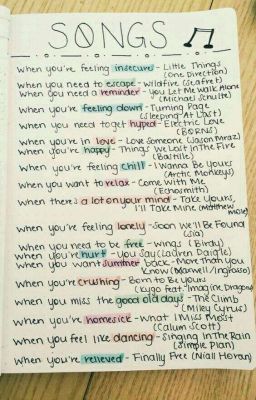 SONGS
when you're feeling insecure - Little Things
(One Direction)
when you need to escape - wildfire (Seafret)
when you need a reminder - You Let Me Walk Alone
(Michael Schulte)
when you're feeling down - Turning Page
(Sleeping At Last)
when you need to get hyped - Electric Love
(BØRNS)
when you're in love - Love Someone (Jason Mraz)
when you're happy - Things We Lost In The Fire
(Bastille)
when you're feeling chill - I Wanna Be Yours
(Arctic Monkeys)
when you want to relax - Come With Me
(Echosmith)
when there's a lot on your mind - Take Yours,
I'll Take Mine (Matthew
more)
when you're feeling lonely - Soon We'll Be Found
(Sia)
when you need to be free - wings (Birdy)
when you're hurt - You Say (Lauren Daigle)
when you want summer back - More Than You
Know (Axwell/Ingrosso)
when you're crushing - Born to Be Yours
(kygo feat. Imagine Dragons)
when you miss the good old days - The Climb
(Miley Cyrus)
when you're homesick - What I Miss Most
(Calum Scott)
when you feel like dancing - Singing In The Rain
(Simple Plan)
when you're relieved - Finally Free (Niall Horan)